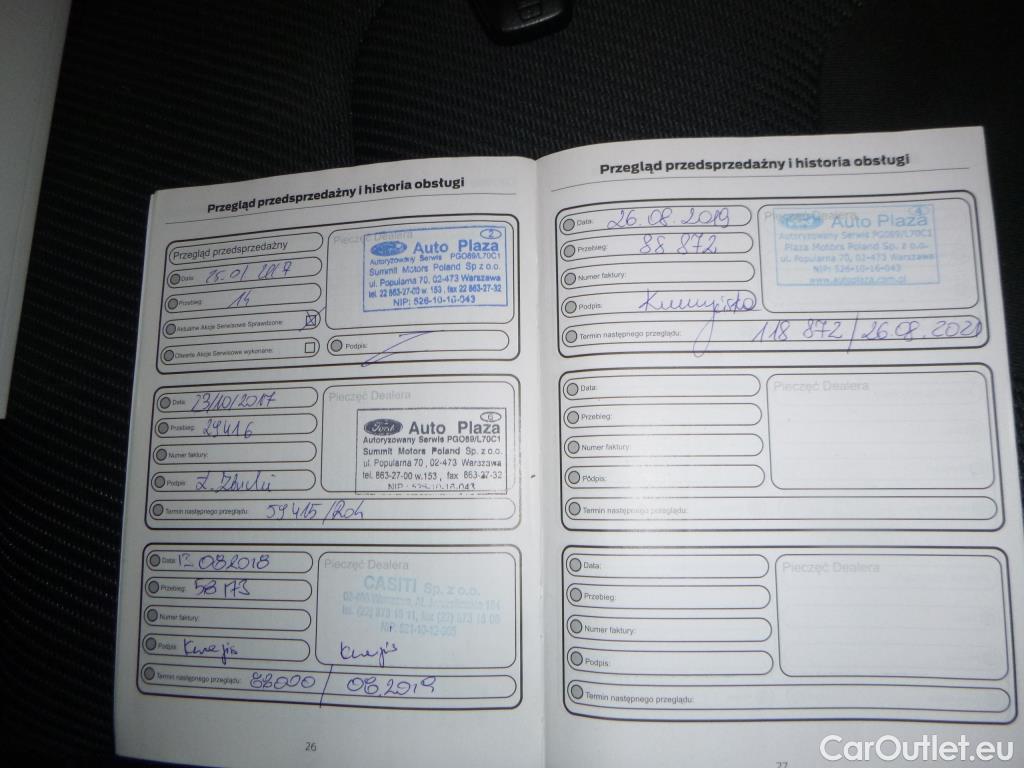 Przegląd przedsprzedażny i historia obsługi
Przegląd przedsprzedażny
Data: 25.01.2017
Przebieg: 14
Aktualne Akcje Serwisowe Sprawdzone:
Otwarte Akcje Serwisowe wykonane:
Pieczęć Dealera
2
Ford Auto Plaza
Autoryzowany Serwis PGO89/L70C1
Summit Motors Poland Sp z o.o.
ul. Popularna 70, 02-473 Warszawa
tel. 22 863-27-00 w. 153, fax 22 863-27-32
NIP: 526-10-16-043
Podpis:
Data: 23/10/2017
Przebieg: 29416
Numer faktury:
Podpis:
Pieczęć Dealera
6
Ford Auto Plaza
Autoryzowany Serwis PGO89/L70C1
Summit Motors Poland Sp. z o.o.
ul. Popularna 70, 02-473 Warszawa
tel. 863-27-00 w.153, fax 863-27-32
NIP: 526-10-16-043
Termin następnego przeglądu: 59415/Rok
Data: 13 082018
Przebieg: 58173
Numer faktury:
Podpis:
Pieczęć Dealera
CASITI Sp. z o.o.
Termin następnego przeglądu: 88000 / 08.2019
26
Przegląd przedsprzedażny i historia obsługi
Data: 26.08.2019
Przebieg: 88 872
Numer faktury:
Podpis:
Pieczęć Dealera
4
Ford Auto Plaza
Autoryzowany Serwis PGO89/L70C1
Plaza Motors Poland Sp. z o.o.
ul. Popularna 70, 02-473 Warszawa
NIP: 526-10-16-043
www.autoplaza.com.pl
Termin następnego przeglądu: 118 872 / 26.08.2020
Data:
Przebieg:
Numer faktury:
Podpis:
Pieczęć Dealera
Termin następnego przeglądu:
Data:
Przebieg:
Numer faktury:
Podpis:
Pieczęć Dealera
Termin następnego przeglądu:
27
CarOutlet.eu